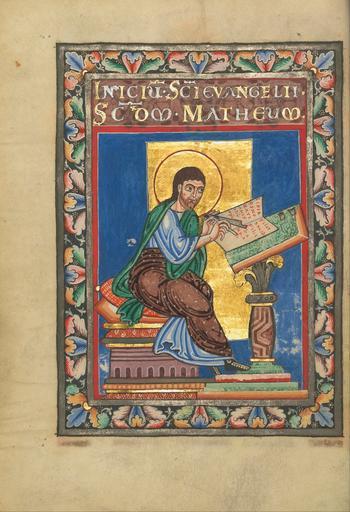 INICIU·SCI EVANGELII·
SCDM·MATHEUM·